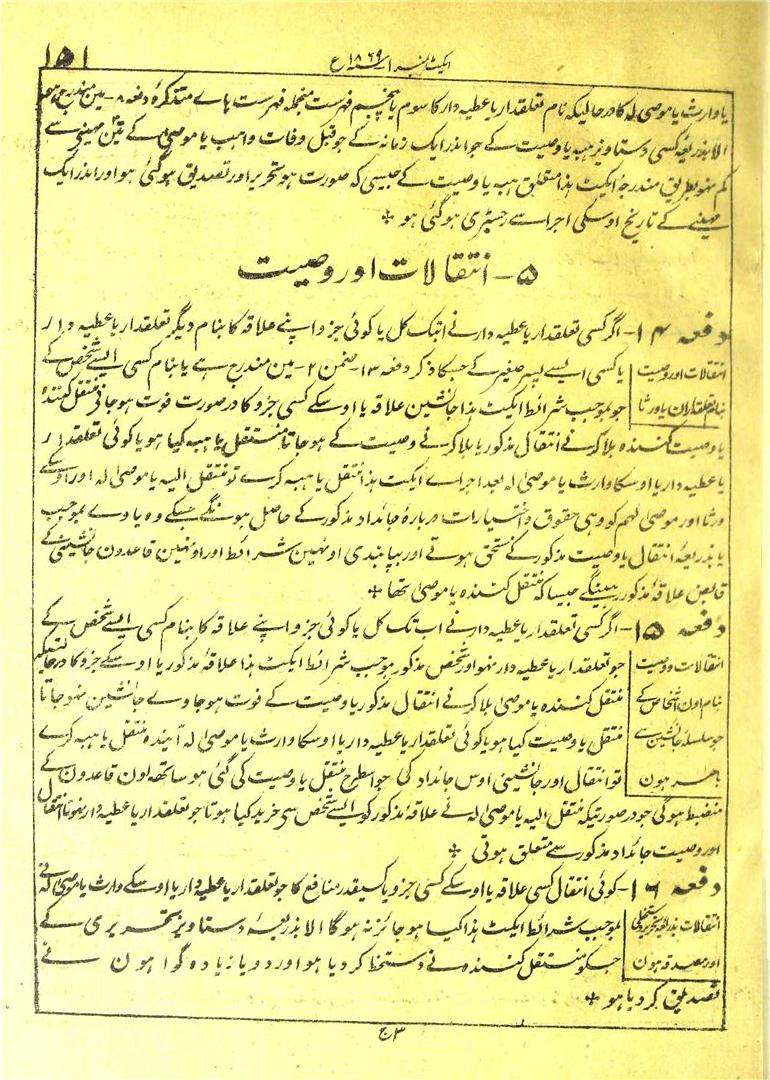 ایکٹ نمبر ا سنہ ۱۸۶۹ع
۱۵۱
یا وارث یا موصی لہ کا درحالیکہ نام تعلقدار یا عطیہ دار کا سوم یا پنجم فہرست منجملہ فہرست ہاے متذکرۂ دفعہ ۸- مین مندرج ہو
الا بذریعہ کسی دستاویز ہبہ یا وصیت کے جو اندر ایک زمانہ کے جو قبل وفات واہب یا موصی کے تین مہینے سے
کم نہو بطریق مندرجۂ ایکٹ ہذا متعلق ہبہ یا وصیت کے جیسی کہ صورت ہو تحریر اور تصدیق ہو گئی ہو اور اندر ایک
مہینے کے تاریخ اوسکی اجرا سے رجسٹری ہو گئی ہو *
۵- انتقالات اور وصیت
دفعہ ۱۴- اگر کسی تعلقدار یا عطیہ دار نے ابتک کل یا کوئی جزو اپنے علاقہ کا بنام دیگر تعلقدار یا عطیہ دار
انتقالات اور وصیت
یا کسی ایسے پسر صغیر کے جسکا ذکر دفعہ ۱۳- ضمن ۲- مین مندرج ہے یا بنام کسی ایسے شخص کے
بنام تعلقداران یا ورثا
جو بموجب شرائط ایکٹ ہذا جانشین علاقہ یا اوسکے کسی جزو کا در صورت فوت ہو جانے منتقل کنندہ
یا وصیت کنندہ بلا کرنے انتقال مذکور یا بلا کرنے وصیت کے ہو جاتا منتقل یا ہبہ کیا ہو یا کوئی تعلقدار
یا عطیہ دار یا اوسکا وارث یا موصی لہ بعد اجراے ایکٹ ہذا منتقل یا ہبہ کرے تو منتقل الیہ یا موصی لہ اور اوسکے
ورثا اور موصی لہم کو وہی حقوق و اختیارات دربارۂ جائداد مذکور کے حاصل ہونگے جسکے وہ یا وے بموجب
یا بذریعۂ انتقال یا وصیت مذکور کے مستحق ہوتے اور بپابندی اونہین شرائط اور اونہین قاعدون جانشینی کے
قابض علاقۂ مذکور رہینگے جیسا کہ منتقل کنندہ یا موصی تھا *
دفعہ ۱۵- اگر کسی تعلقدار یا عطیہ دار نے اب تک کل یا کوئی جزو اپنے علاقہ کا بنام کسی ایسے شخص کے
انتقالات و وصیت
جو تعلقدار یا عطیہ دار نہو اور شخص مذکور بموجب شرائط ایکٹ ہذا علاقۂ مذکور یا اوسکے جزو کا درحالیکہ
بنام اون اشخاص کے
منتقل کنندہ یا موصی بلا کرنے انتقال مذکور یا وصیت کے فوت ہو جاوے جانشین نہو جاتا
جو سلسلۂ جانشینی سے
منتقل یا وصیت کیا ہو یا کوئی تعلقدار یا عطیہ دار یا اوسکا وارث یا موصی لہ آیندہ منتقل یا ہبہ کرے
باہر ہون
تو انتقال اور جانشینی اوس جائداد کی جو اسطرح منتقل یا وصیت کی گئی ہو ساتھ اون قاعدون کے
منضبط ہو گی جو در صورتیکہ منتقل الیہ یا موصی لہ نے علاقہ مذکور کو ایسے شخص سے خرید کیا ہوتا جو تعلقدار یا عطیہ دار نہوتا انتقال
اور وصیت جائداد مذکور سے متعلق ہوتی *
دفعہ ۱۶- کوئی انتقال کسی علاقہ یا اوسکے کسی جزو یا کسیقدر منافع کا جو تعلقدار یا عطیہ دار یا اوسکے وارث یا موصی لہ نے
انتقالات بذریعہ تحریر دستخطی
بموجب شرائط ایکٹ ہذا کیا ہو جائز نہ ہو گا الا بذریعۂ دستاویز تحریری کے
اور مصدقہ ہون
جسکو منتقل کنندہ نے دستخط کر دیا ہو اور دو یا زیادہ گواہون نے
تصدیق کر دیا ہو *
۳ ج